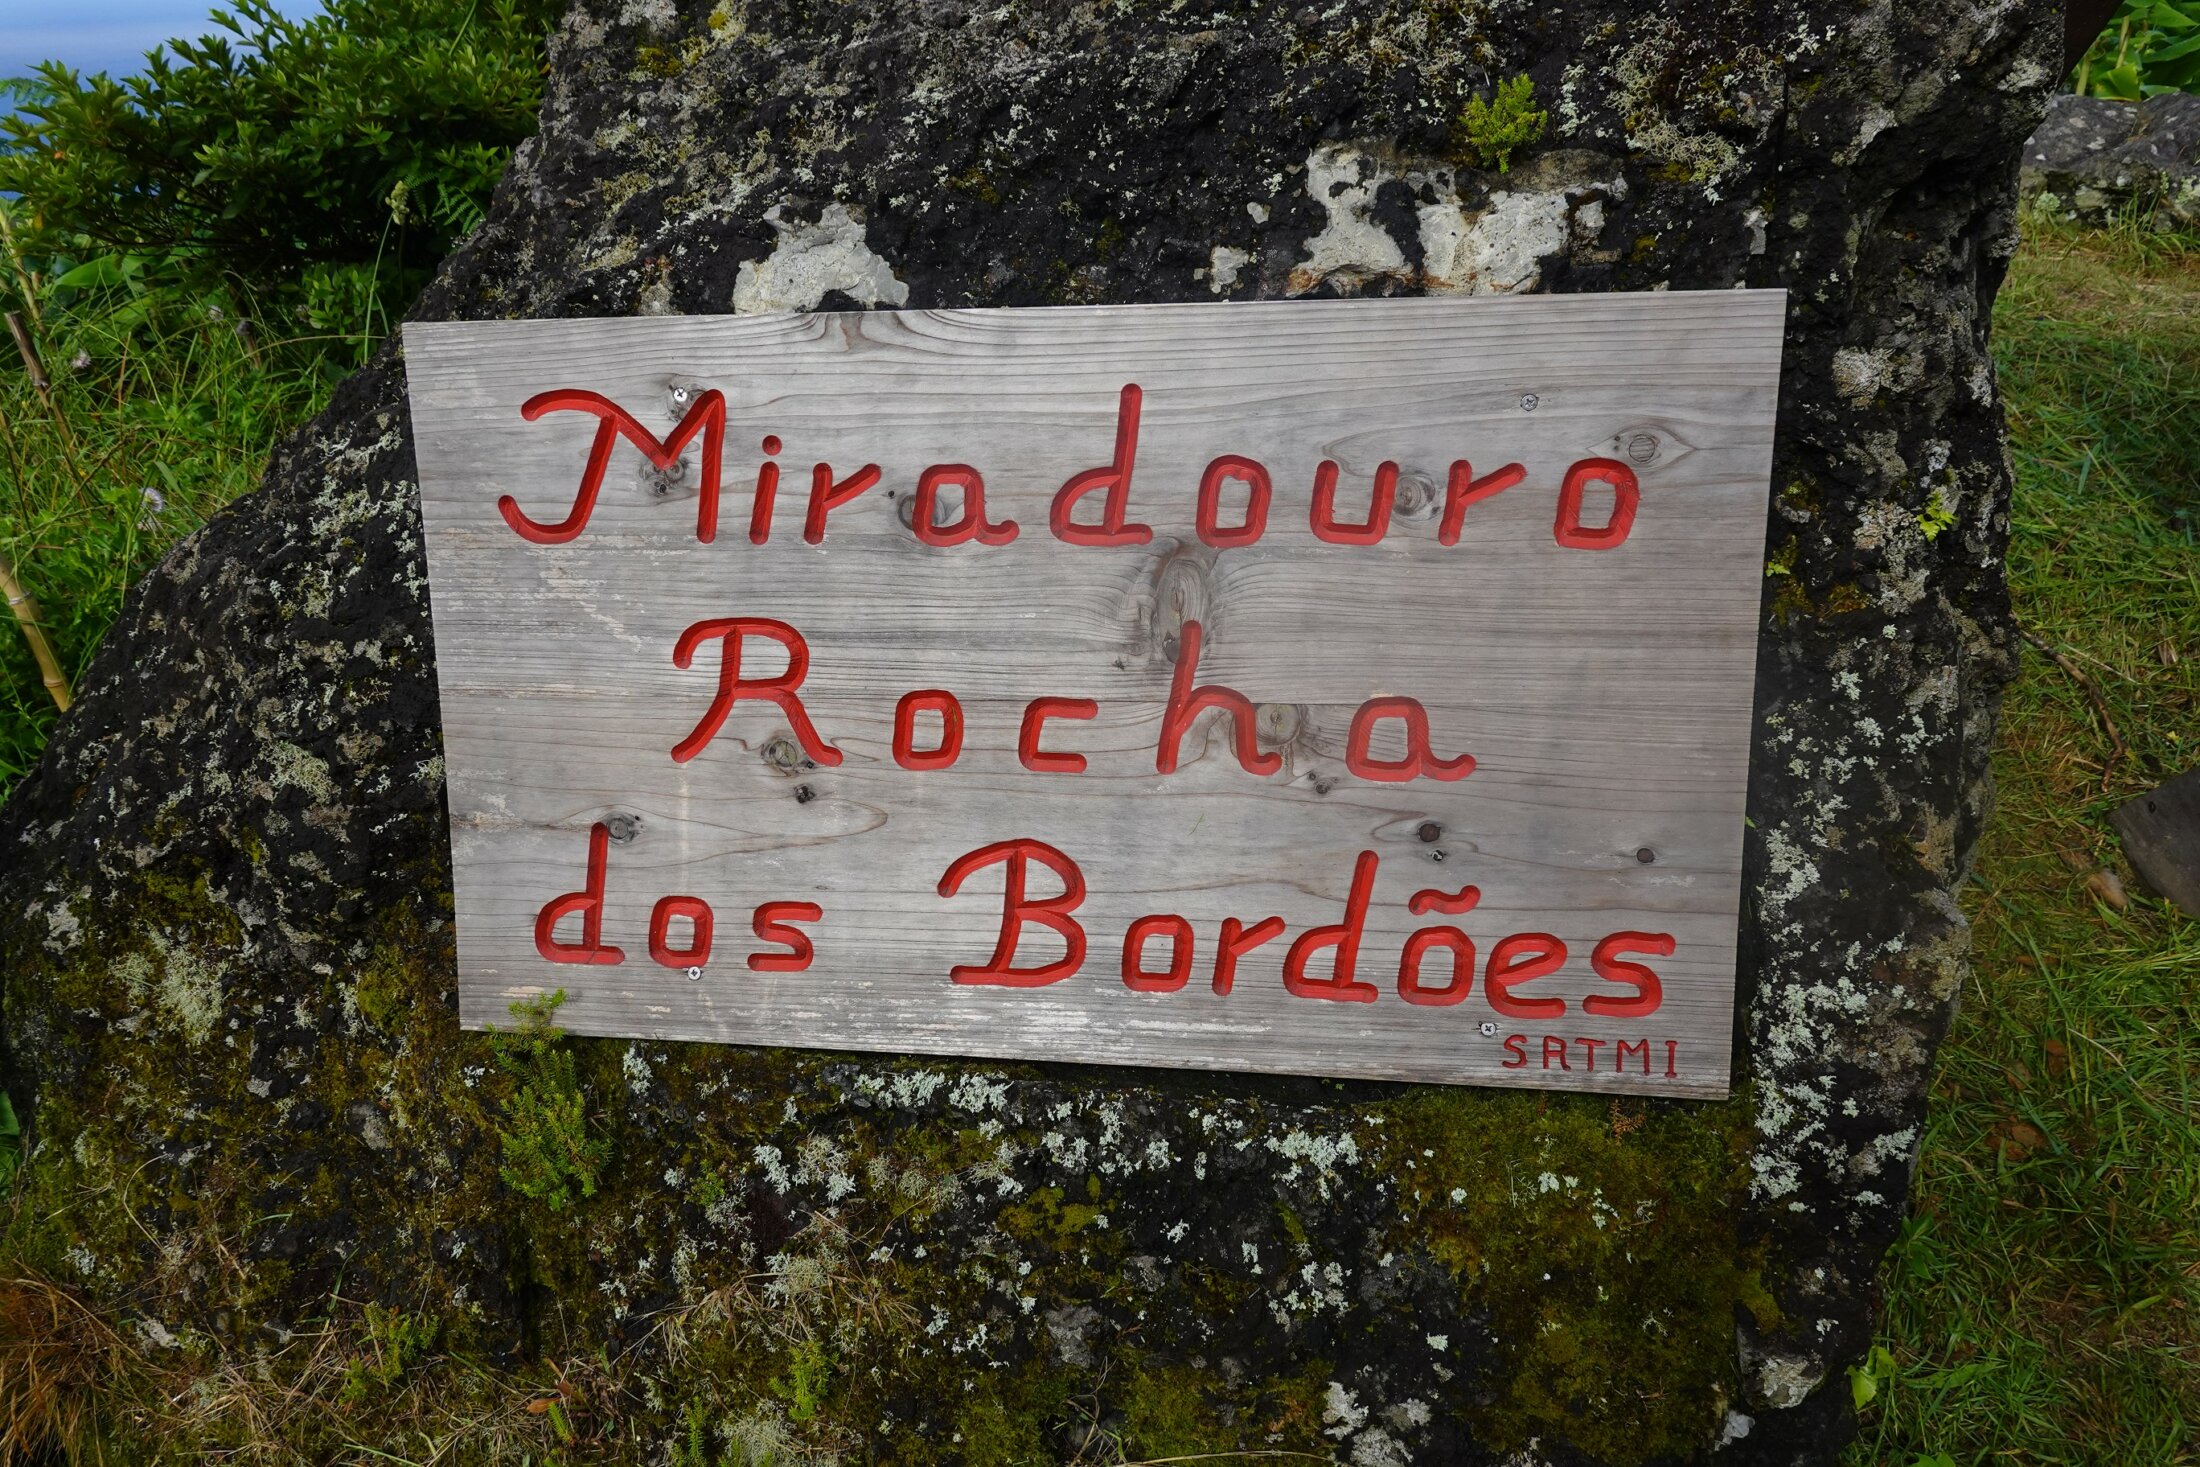 Miradouro
Rocha
dos Bordões
SRTMI